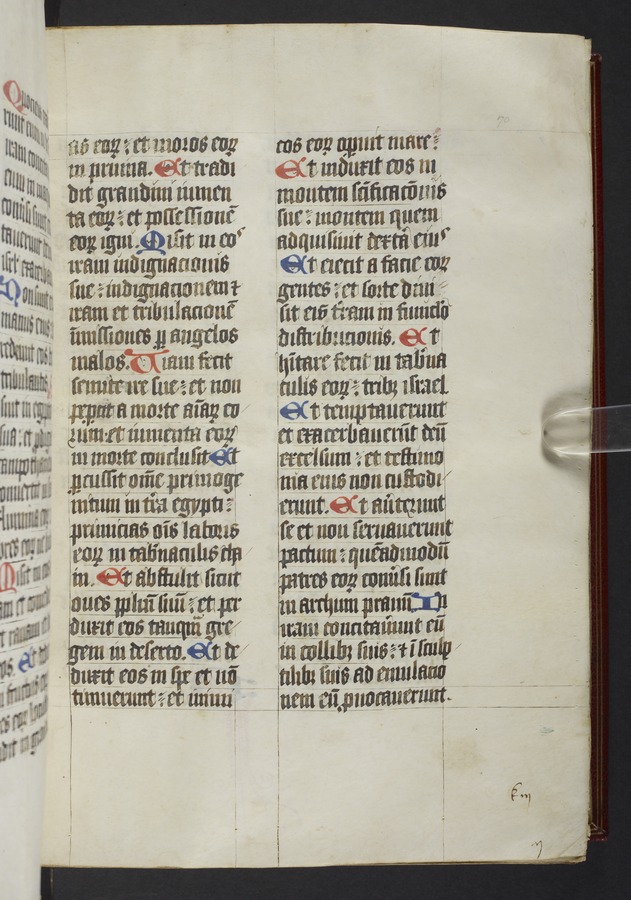 as eoꝝ : et moros eoꝝ
in pruina. Et tradi
dit grandini iumen
ta eoꝝ : et possessionē
eoꝝ igni. Misit in eos
iram indignacionis
sue : indignacionem ⁊
iram et tribulacionē
īmissiones ꝑ angelos
malos. Uiam fecit
semite ire sue : et non
peꝑcit a morte aīaꝝ eo
rum et iumenta eoꝝ
in morte conclusit Et
ꝑcussit om̄e primoge
nitum in tr̄a egypti :
primicias oīs laboris
eoꝝ in tab̄naculis cha
m. Et abstulit sicut
oues pplm̄ suū : et per
duxit eos tanqm̄ gre
gem in deserto. Et de
duxit eos in spe et nō
timuerunt : et inimi
cos eoꝝ opuit mare :
Et induxit eos in
montem sc̄ificacōnis
sue : montem quem
adquisiuit dextā eius
Et eiecit a facie eoꝝ
gentes : et sorte diui
sit eis tr̄am in funiclo
distribucionis. Et
hītare fecit in tab̄na
culis eoꝝ : tribꝫ israel.
Et temptauerunt
et exacerbauerūt deū
excelsum : et testimo
nia eius non custodi
erunt. Et aūterunt
se et non seruauerunt
pactum : quēadmodū
patres eoꝝ conūsi sunt
in archum prauū In
iram concitauūnt eū
in collibꝫ suis : ⁊ ī sculꝑ
tilibꝫ suis ad emulacio
nem eū ꝓuocauerunt.